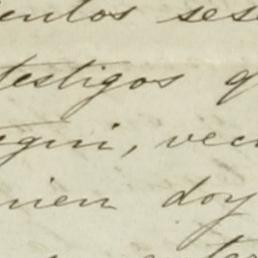 entos ses
testigos q
egui, veci
uien doy